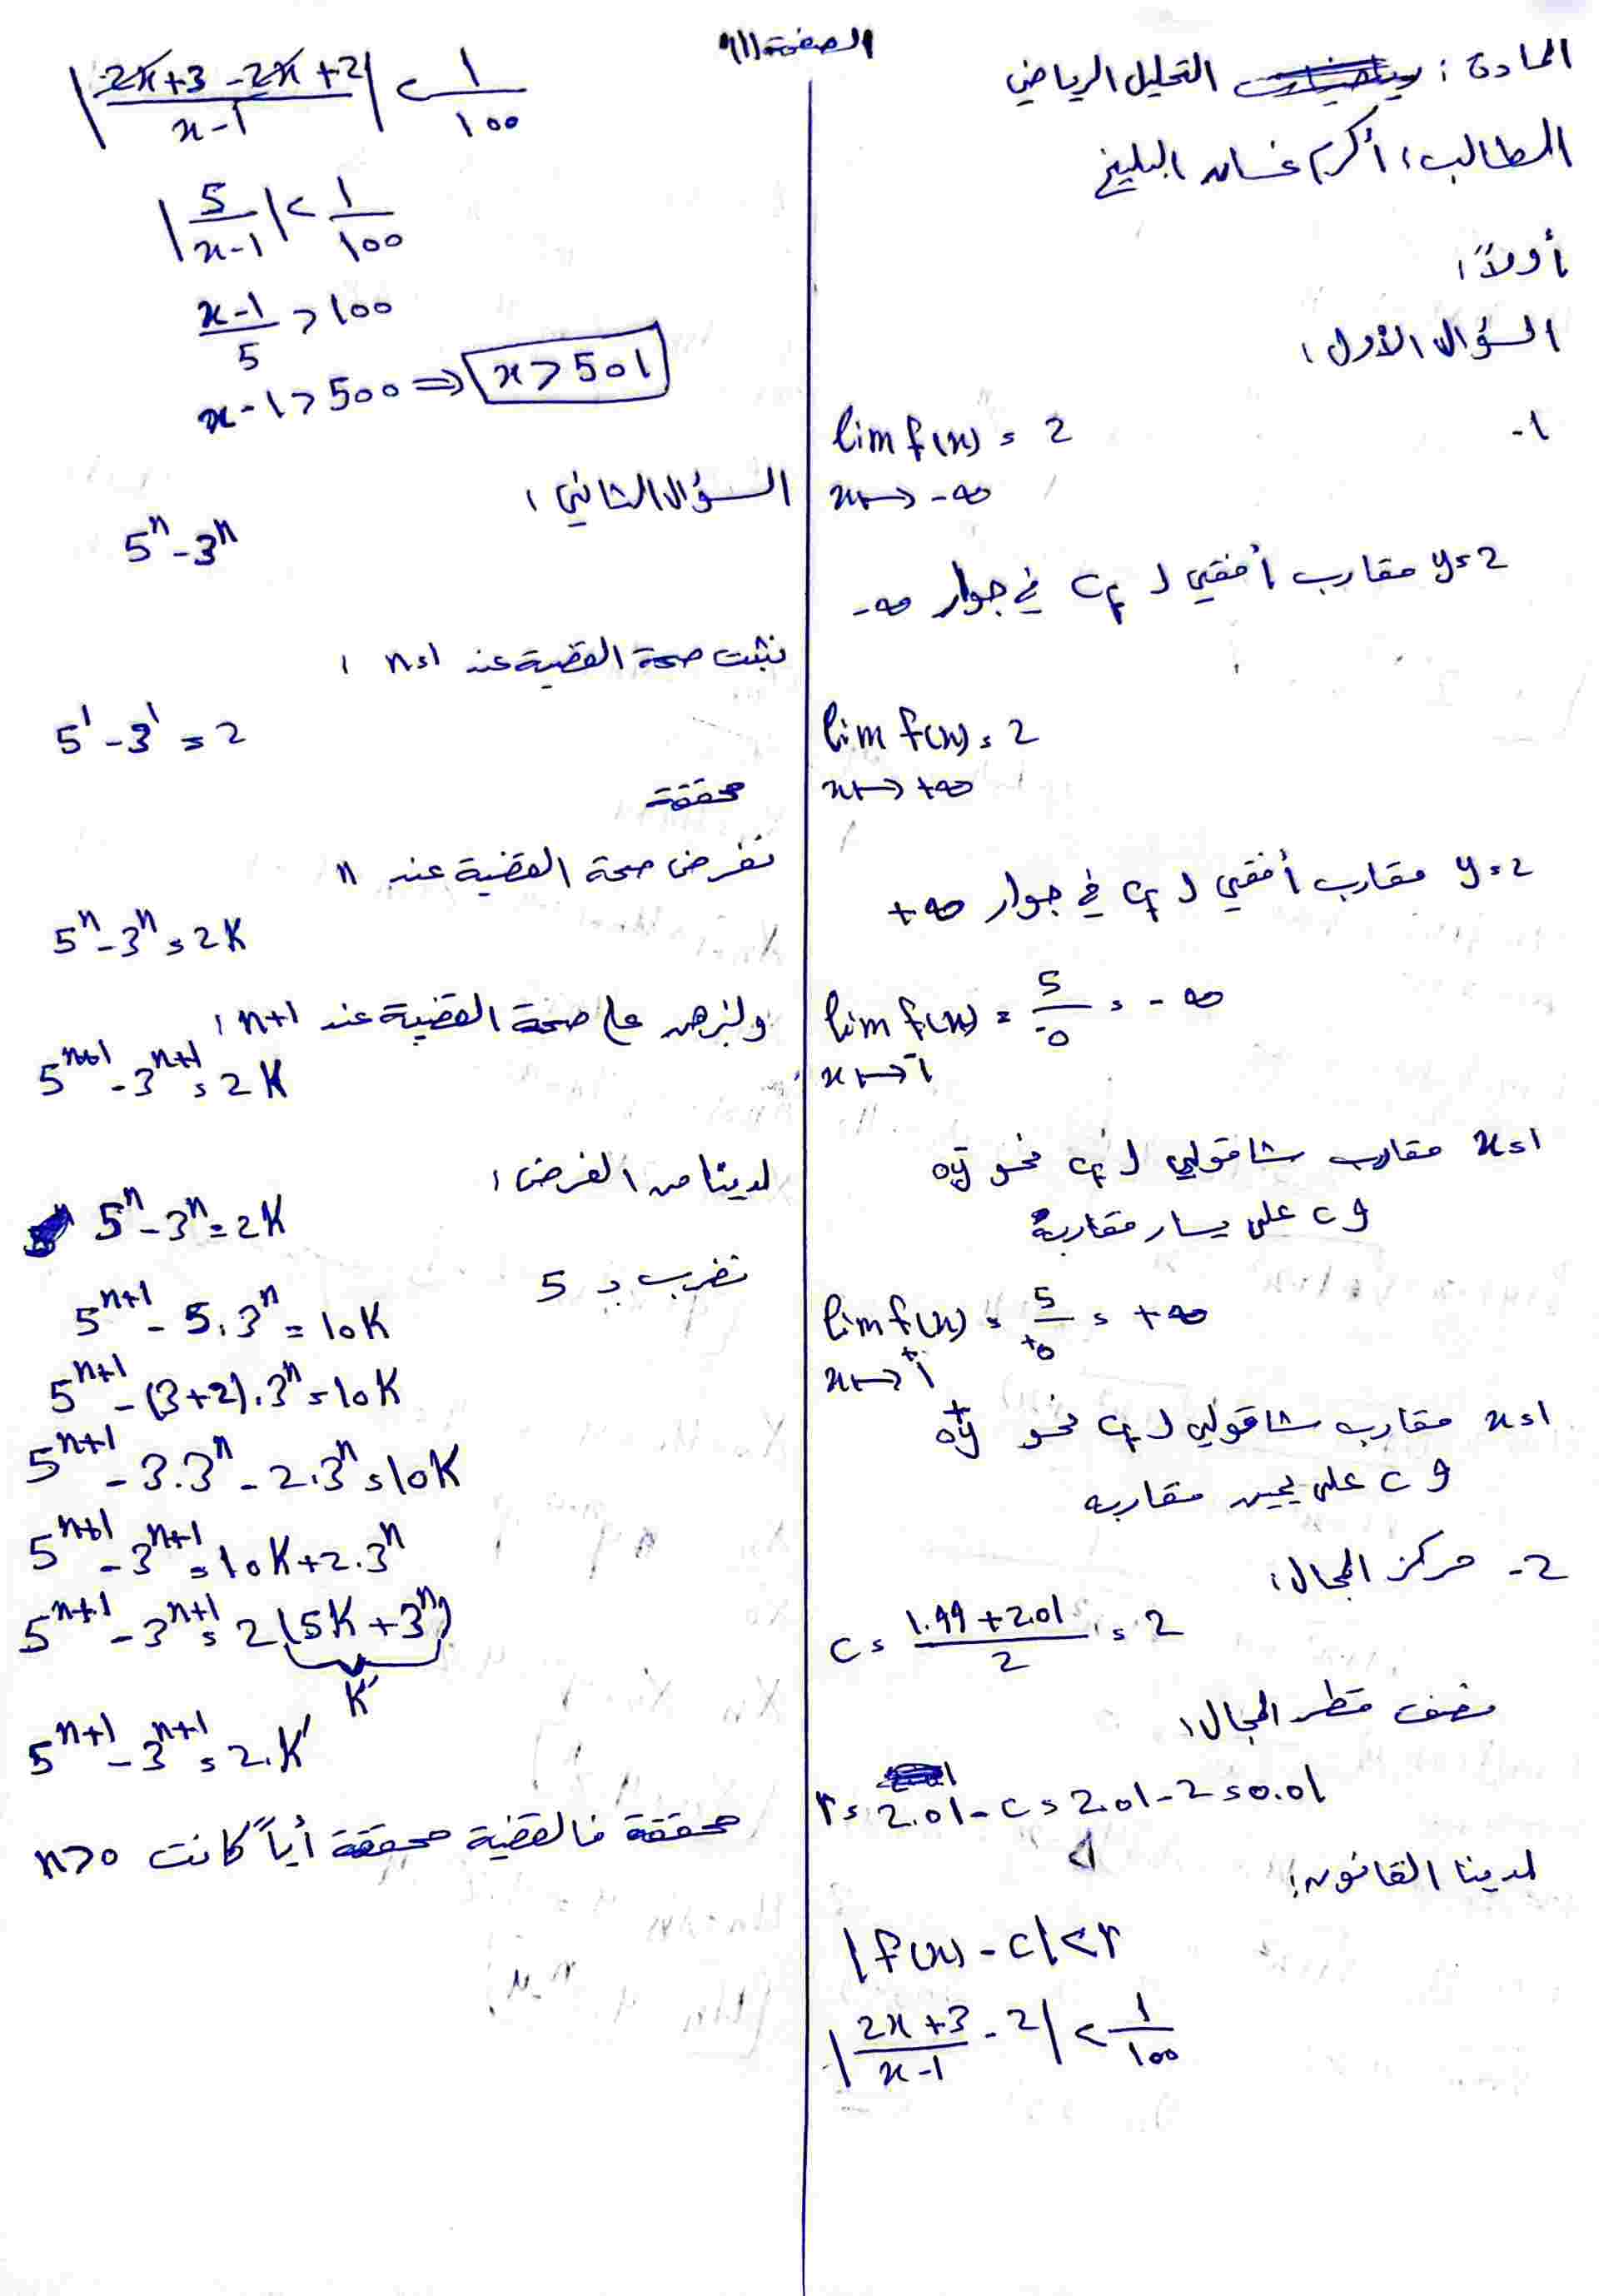 الصفحة (1)
المادة: التحليل الرياضي
الطالب: أكرم غسان البليخ
أولاً:
السؤال الأول:
1- lim f(x) = 2
x→ -∞
y=2 مقارب أفقي لـ Cf في جوار -∞
lim f(x) = 2
x→ +∞
y=2 مقارب أفقي لـ Cf في جوار +∞
lim f(x) = 5/-0 = -∞
x→1⁻
x=1 مقارب شاقولي لـ Cf نحو oy⁻
و C على يسار مقاربه
lim f(x) = 5/+0 = +∞
x→1⁺
x=1 مقارب شاقولي لـ Cf نحو oy⁺
و C على يمين مقاربه
2- مركز المجال:
C = (1.99+2.01)/2 = 2
نصف قطر المجال:
r = 2.01 - C = 2.01 - 2 = 0.01
لدينا القانون:
|f(x) - C| < r
|(2x+3)/(x-1) - 2| < 1/100
|(2x+3-2x+2)/(x-1)| < 1/100
|5/(x-1)| < 1/100
(x-1)/5 > 100
x-1 > 500 ⇒ x > 501
السؤال الثاني:
5ⁿ - 3ⁿ
نثبت صحة القضية عند n=1:
5¹ - 3¹ = 2
محققة
نفرض صحة القضية عند n
5ⁿ - 3ⁿ = 2K
ولنبرهن على صحة القضية عند n+1:
5ⁿ⁺¹ - 3ⁿ⁺¹ = 2K
لدينا من الفرض:
5ⁿ - 3ⁿ = 2K
نضرب بـ 5
5ⁿ⁺¹ - 5.3ⁿ = 10K
5ⁿ⁺¹ - (3+2).3ⁿ = 10K
5ⁿ⁺¹ - 3.3ⁿ - 2.3ⁿ = 10K
5ⁿ⁺¹ - 3ⁿ⁺¹ = 10K + 2.3ⁿ
5ⁿ⁺¹ - 3ⁿ⁺¹ = 2(5K + 3ⁿ)
K'
5ⁿ⁺¹ - 3ⁿ⁺¹ = 2.K'
محققة فالقضية محققة أياً كانت n>0